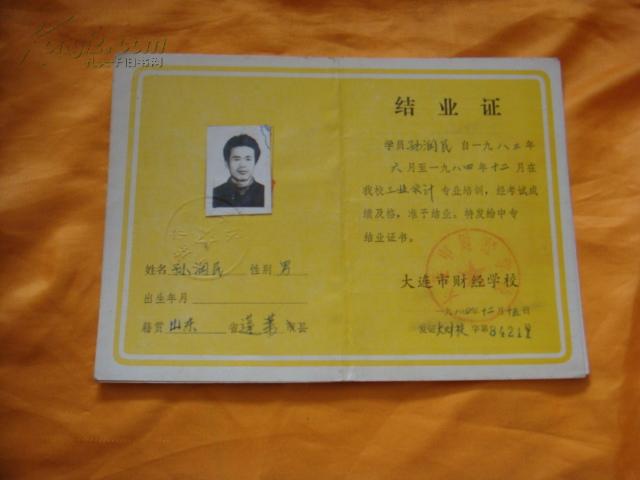 Kongfz.com
孔夫子旧书网
姓名 孙润民 性别 男
出生年月
籍贯 山东 省 蓬莱 县
结业证
学员 孙润民 自一九八三年
六月至一九八四年十二月在
我校 工业会计 专业培训，经考试成
绩及格，准于结业。特发给中专
结业证书。
大连市财经学校
一九八四年十二月十五日
发证 大财校 字第 8421 号